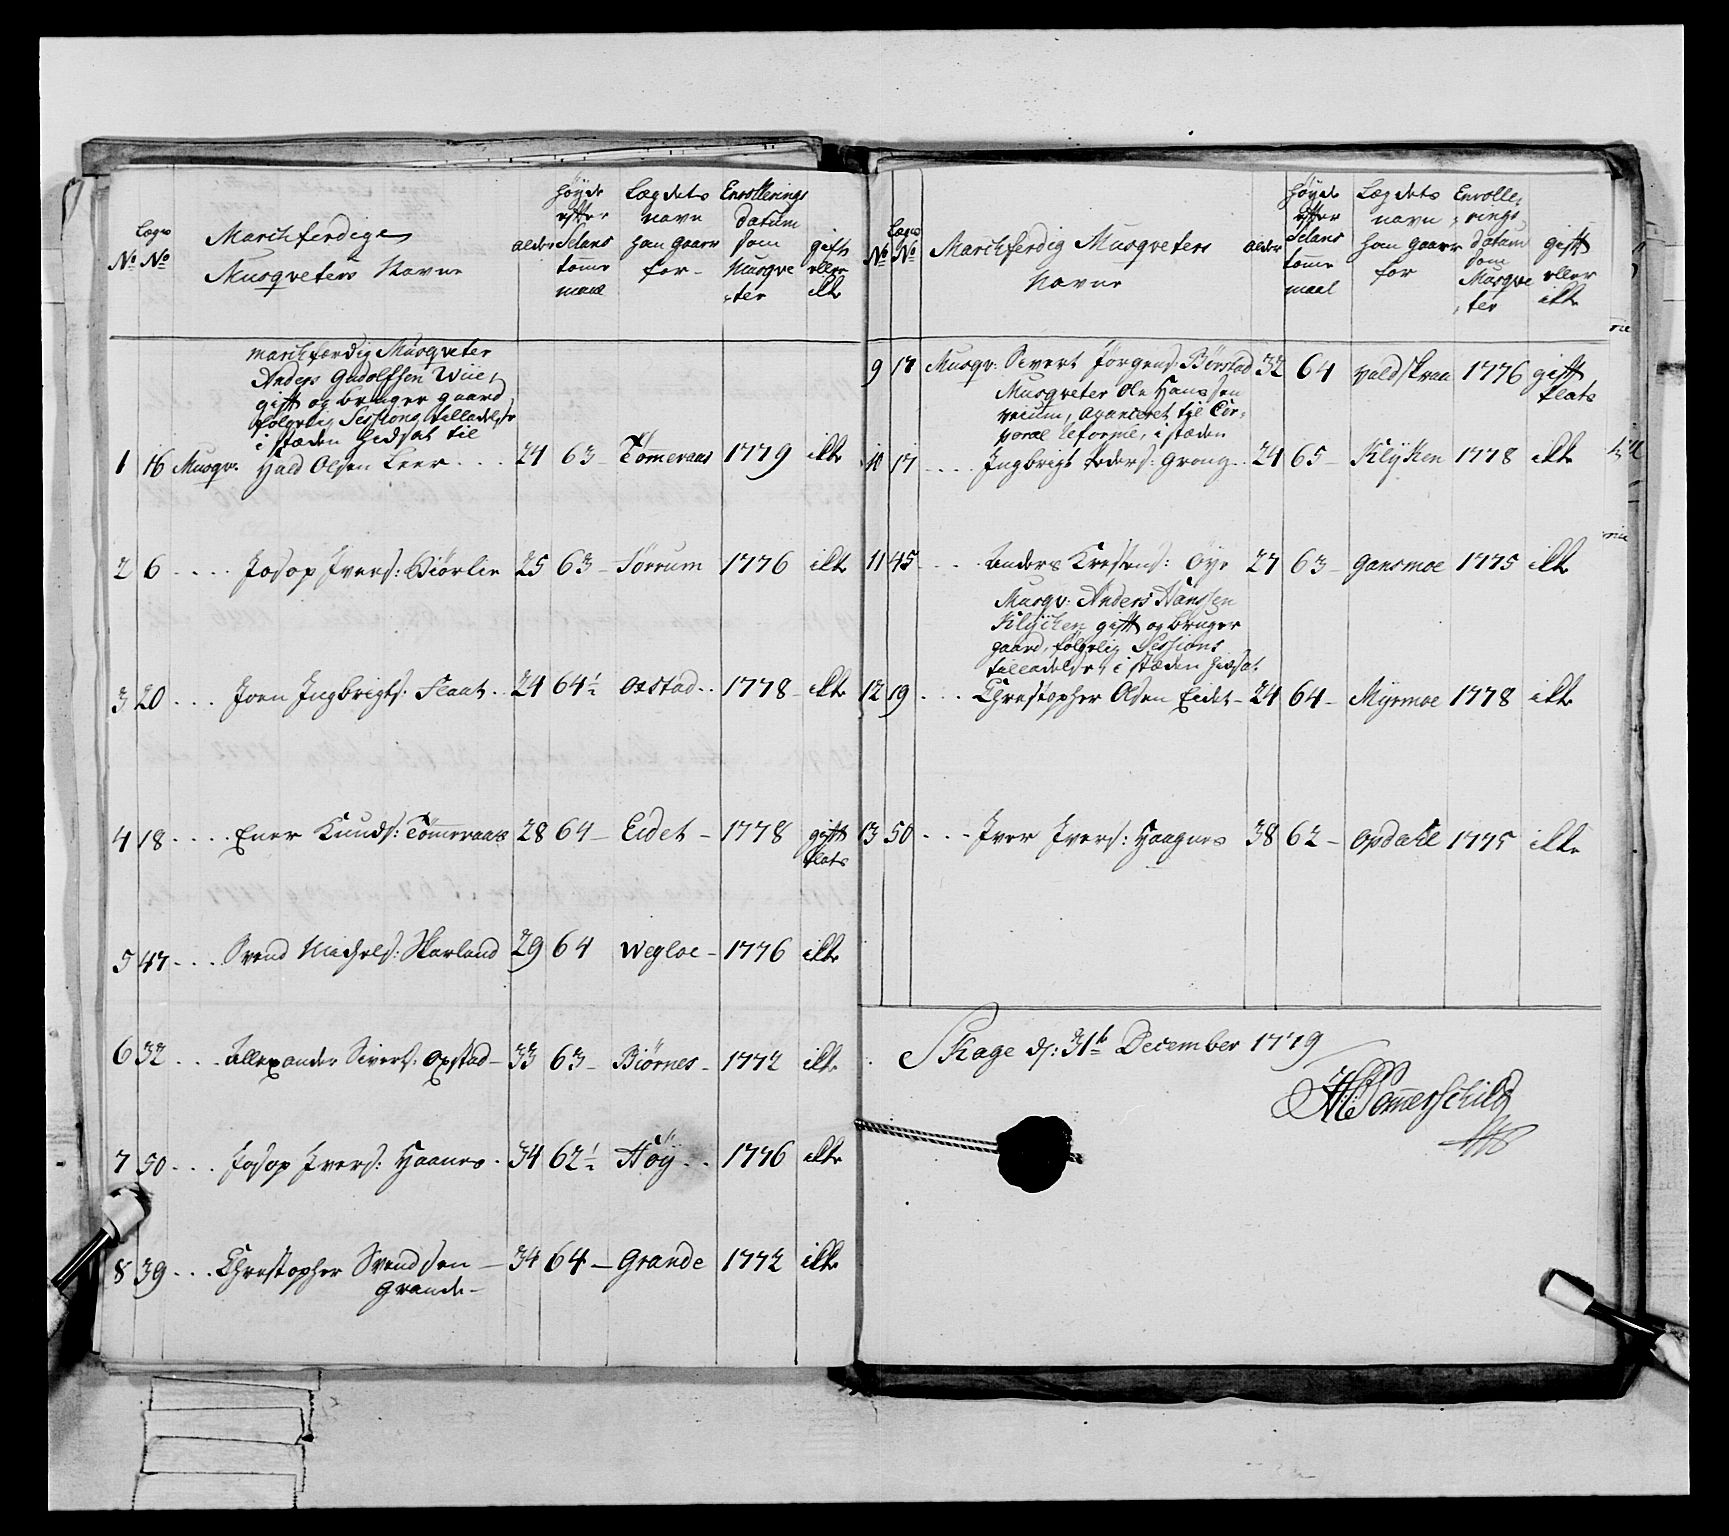 No
Lægs No
Marchferdige
Musqveters Navne
alder
Høyde
efter
Selans
tomme
maal
Lægdets
navn
han gaar
for
Enrollerings
datum
som
Musqve
ter
gift
eller
ikke
marchfærdig Musqveter
Anders Gudolfsen Wiie,
gift og bruger gaard
følgelig Sessions tilladelse
i stæden hidsat til
1 16 Musqv: Hald Olsen Leer .... 24 63 - Tømeraas 1779 ikke
2 6 .... Josop Ivers: Biørlie 25 63 - Sørrum 1776 ikke
3 20 ... Joen Ingbrigts: Flaat .. 24 64 1/2 Oxstad .. 1778 - ikke
4 18 .... Ener Knuds: Tømeraas 28 64 - Eidet - 1778 gift
Plats
5 47 ... Svend Michels: Skarland 29 64 Wegloe - 1776 ikke
6 32 ... Allexander Siverts: Oxstad - 33 63 - Biørnes - 1772 ikke
7 50 ... Josop Ivers: Haanes . 34 62 1/2 Høÿ .. 1776 ikke
8 39 ... Christopher Svendsen - 34 64 - Grande 1772 ikke
Grande -
No
Lægs No
Marchferdig Musqveters
Navne
alder
Høyde
efter
Selans
tomme
maal
Lægdets
navn
han gaar
for
Enrolle,
rings
datum
som
Musqve
ter
gift
eller
ikke
9 17 Musqv: Sivert Jørgens: Børstad 32 64 valdskraa 1776 gift
Plats
Musqveter Ole Hanssen
Veium, avanceret til Cor,
poral Reforme, i stæden
10 17 .... Ingbrigt Peders: Grong .. 24 65 - Klyken 1778 ikke
11 45 .... Anders Krestens: Øye 27 63 - Gansmoe 1775 ikke
Musqv: Anders Hanssen
Klyken gift og bruger
gaard, følgelig Sessions
tilladelse, i stæden hidsat
12 19 ... Christopher Olsen Eidet - 24 64 - Myrmoe 1778 ikke
13 50 ... Iver Ivers: Haagnes 38 62 - Opdahl 1775 ikke
Skage d: 31te December 1779
Sommerschild